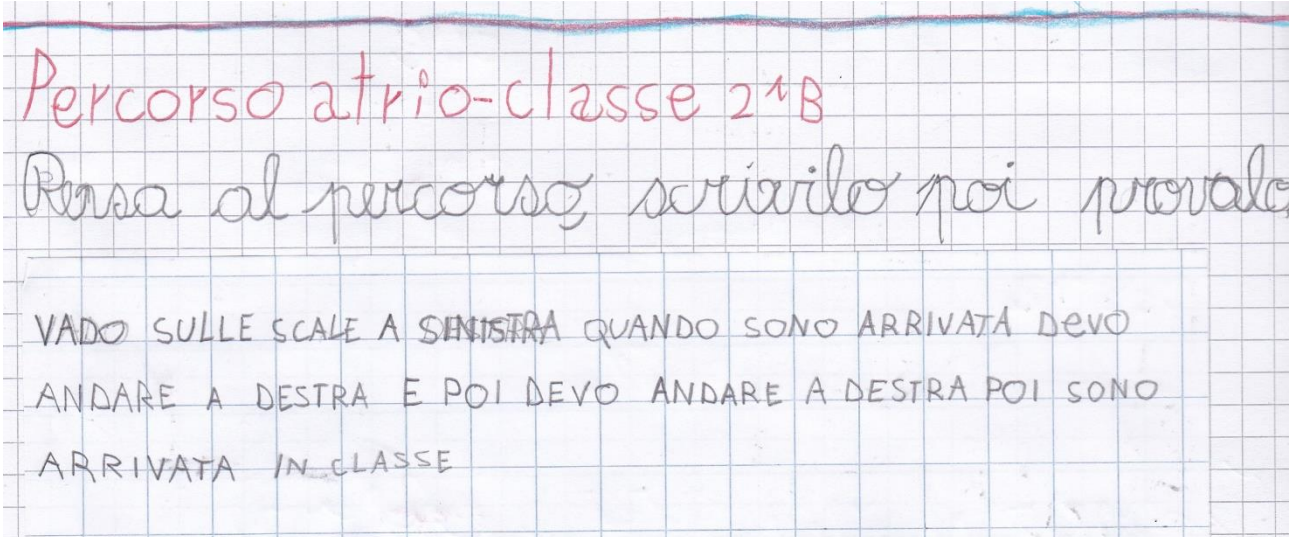 Percorso atrio-classe 2^B
Pensa al percorso, scrivilo poi provalo
VADO SULLE SCALE A SINISTRA QUANDO SONO ARRIVATA DEVO
ANDARE A DESTRA E POI DEVO ANDARE A DESTRA POI SONO
ARRIVATA IN CLASSE